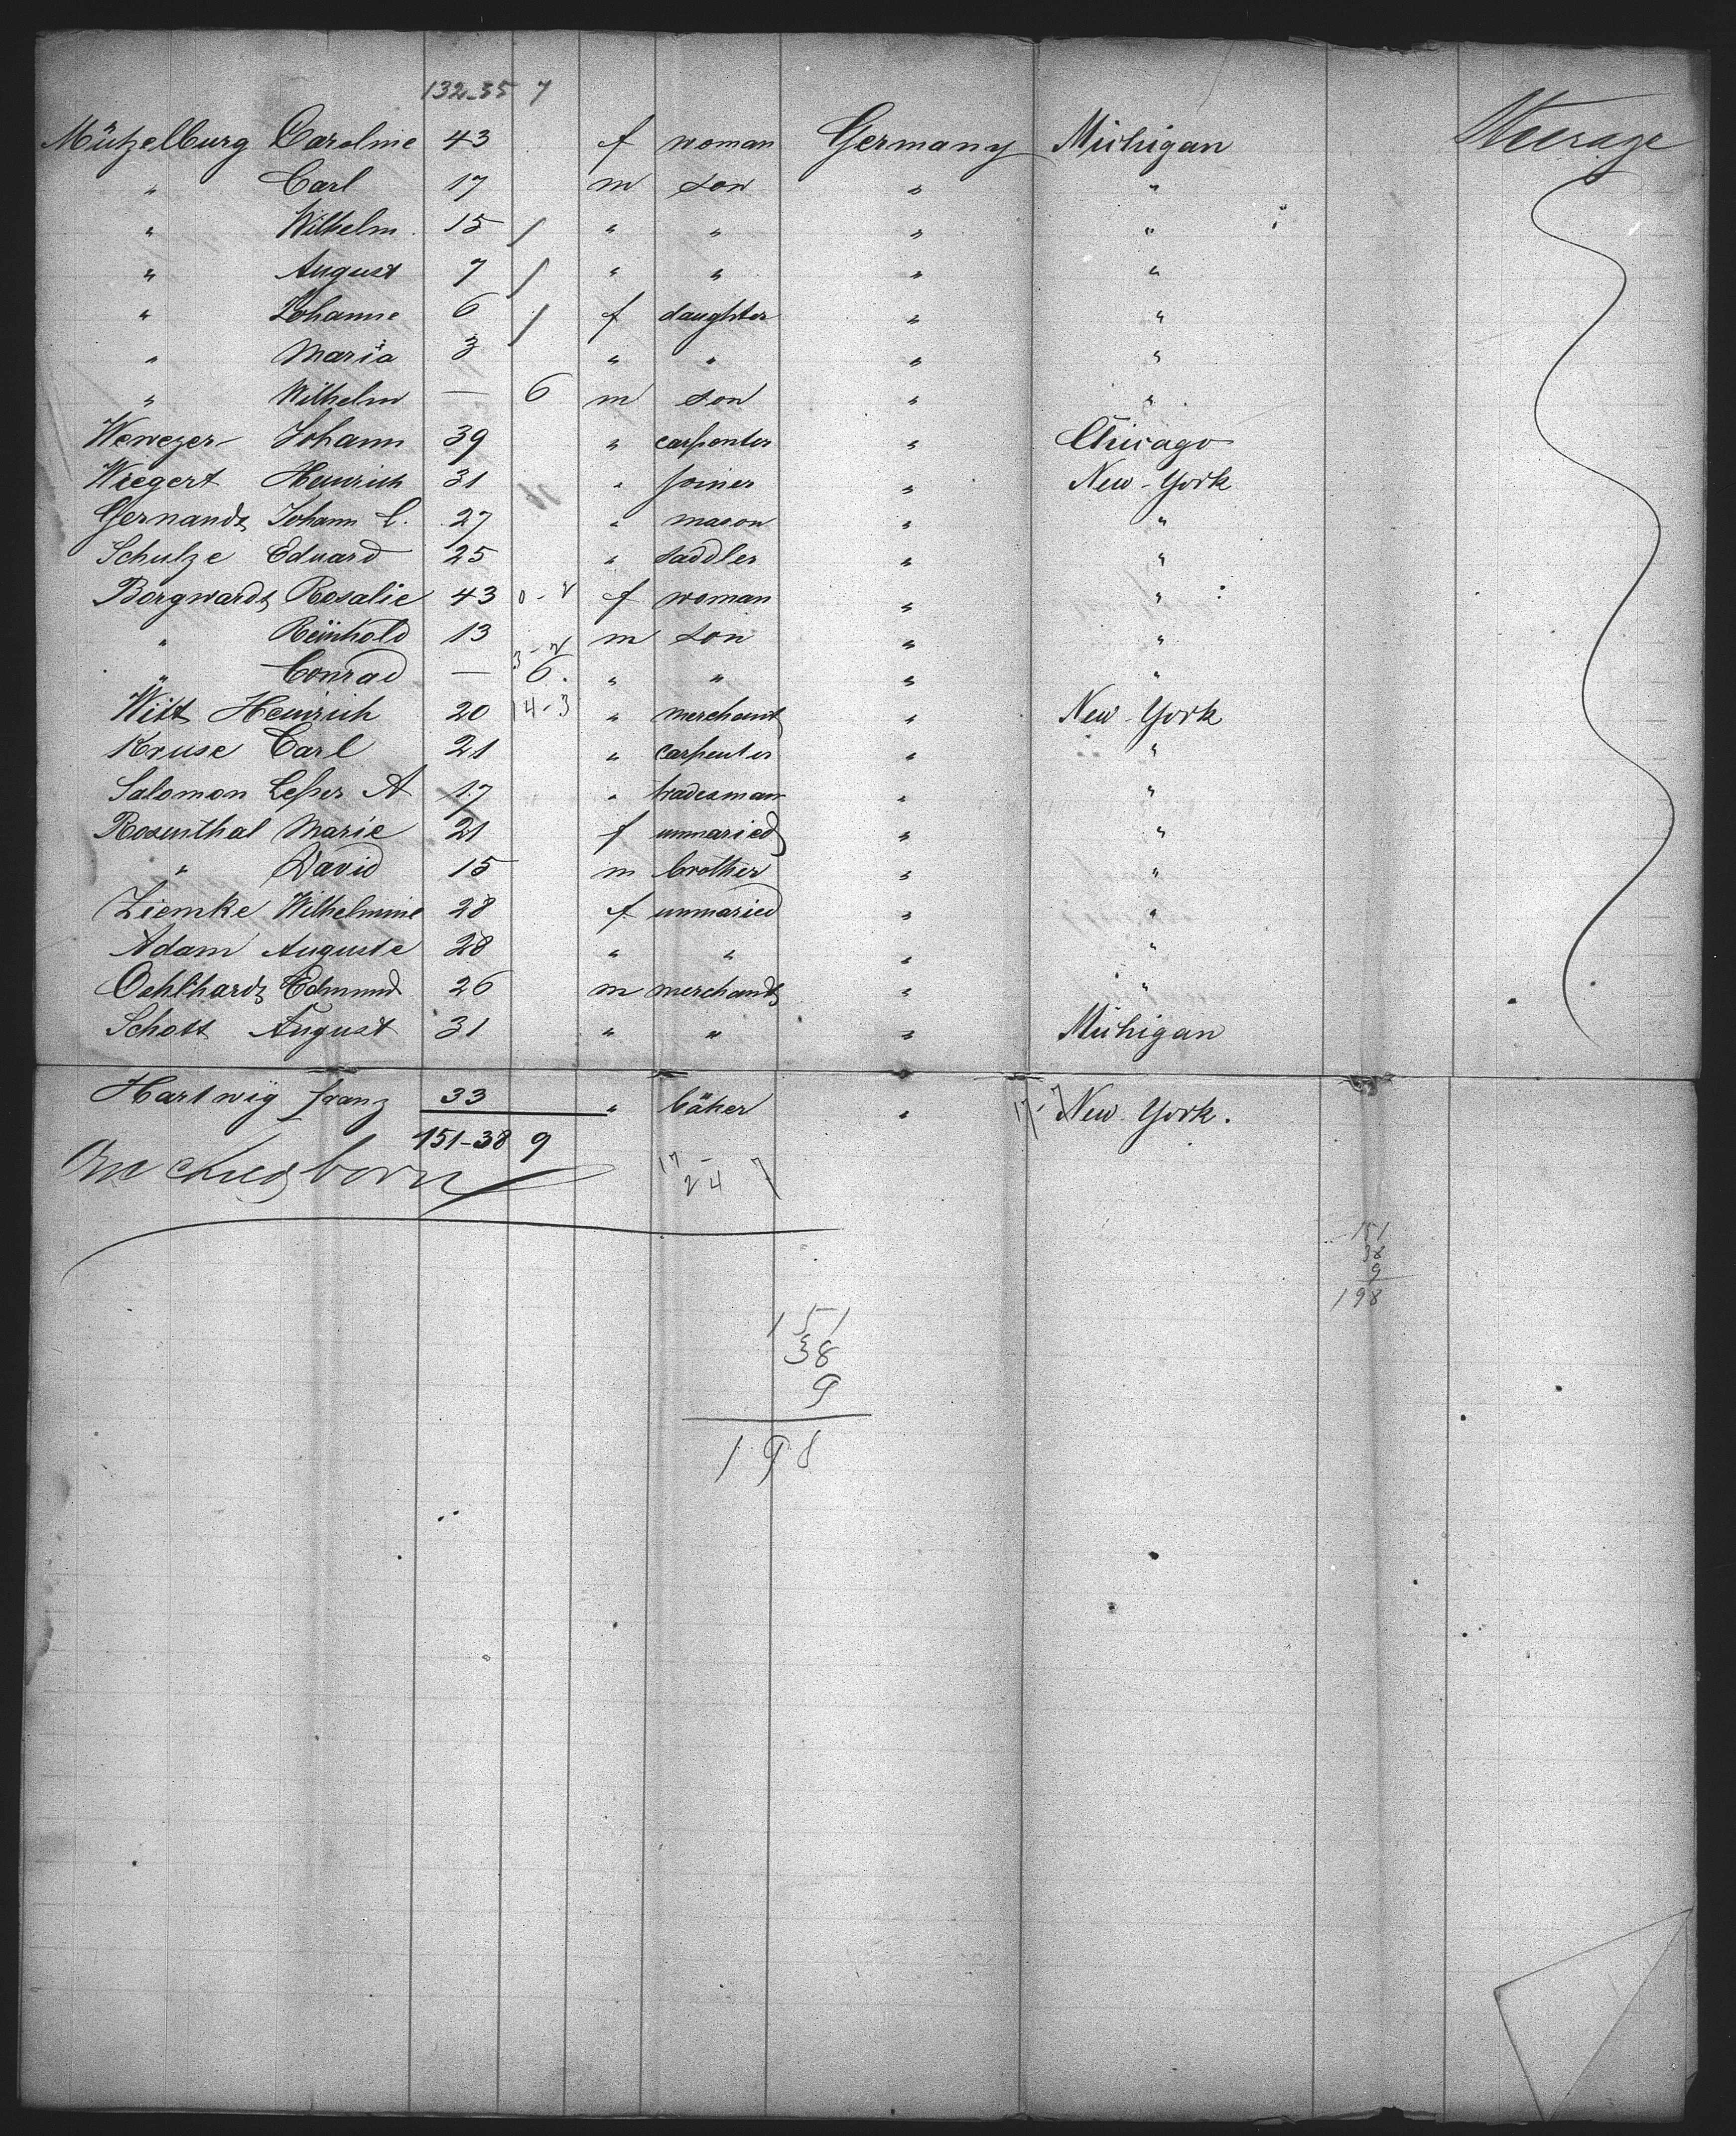 132-35 7
Mützelburg Caroline 43 f woman Germany Michigan Steerage
" Carl 17 m son " "
" Wilhelm 15 " " " "
" August 7 " " " "
" Johanne 6 f daughter " "
" Maria 3 " " " "
" Wilhelm — 6 m son " "
Weweger Johann 39 " carpenter " Chicago
Wiegert Heinrich 31 " joiner " New-York
Gernandt Johann C. 27 " mason " "
Schulze Eduard 25 " saddler " "
Borgwardt Rosalie 43 0-2 f woman " "
" Reinhold 13 m son " "
3-2
" Conrad — 6. " " " "
Witt Heinrich 20 14-3 " merchant " New-York
Kruse Carl 21 " carpenter " "
Salomon Leßer A 17 " tradesman " "
Rosenthal Marie 21 f unmaried " "
" David 15 m brother " "
Ziemke Wilhelmine 28 f unmaried " "
Adam Auguste 28 " " " "
Oehlhardt Edmund 26 m merchandt " "
Schott August 31 " " " Michigan
Hartwig Franz 33 " bäker " 17-7 New-York.
151-38 9
One born
17-
24 7
151
38
9
198
151
38
9
198